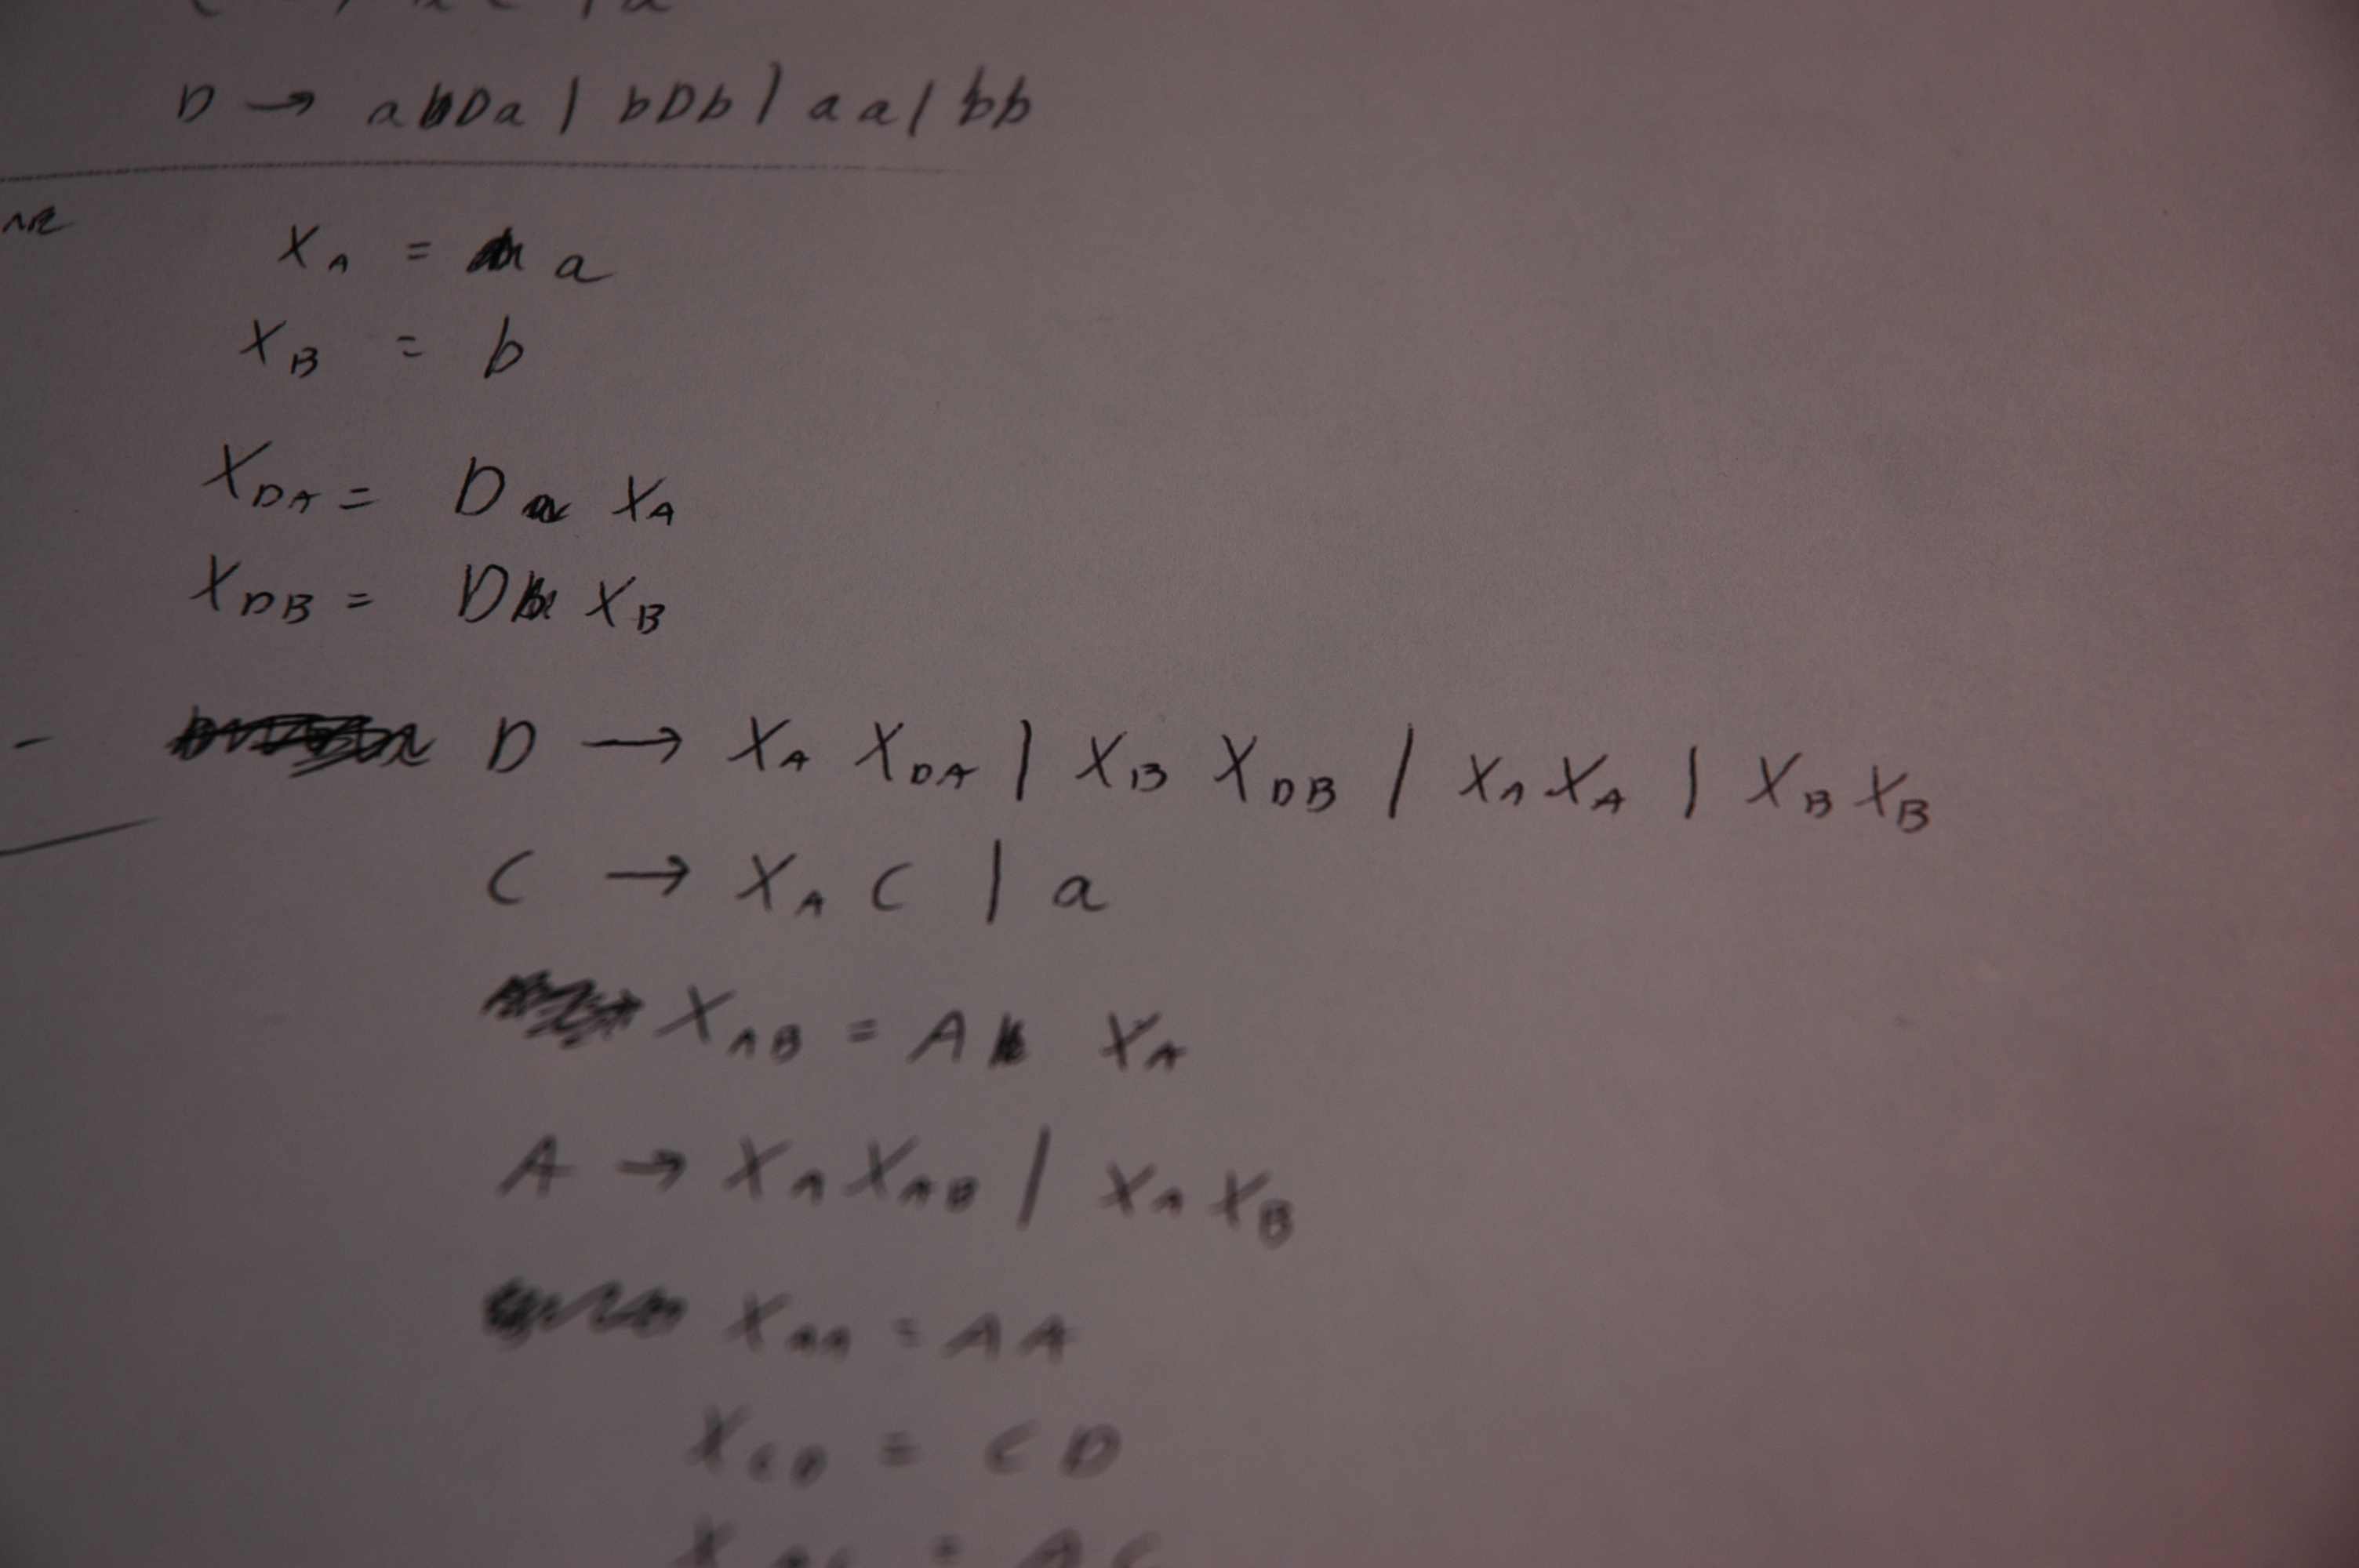 D → aDa | bDb | aa | bb
X_A = a
X_B = b
X_DA = D X_A
X_DB = D X_B
D → X_A X_DA | X_B X_DB | X_A X_A | X_B X_B
C → X_A C | a
X_AB = A X_A
A → X_A X_AB | X_A X_B
X_AA = AA
X_CD = CD